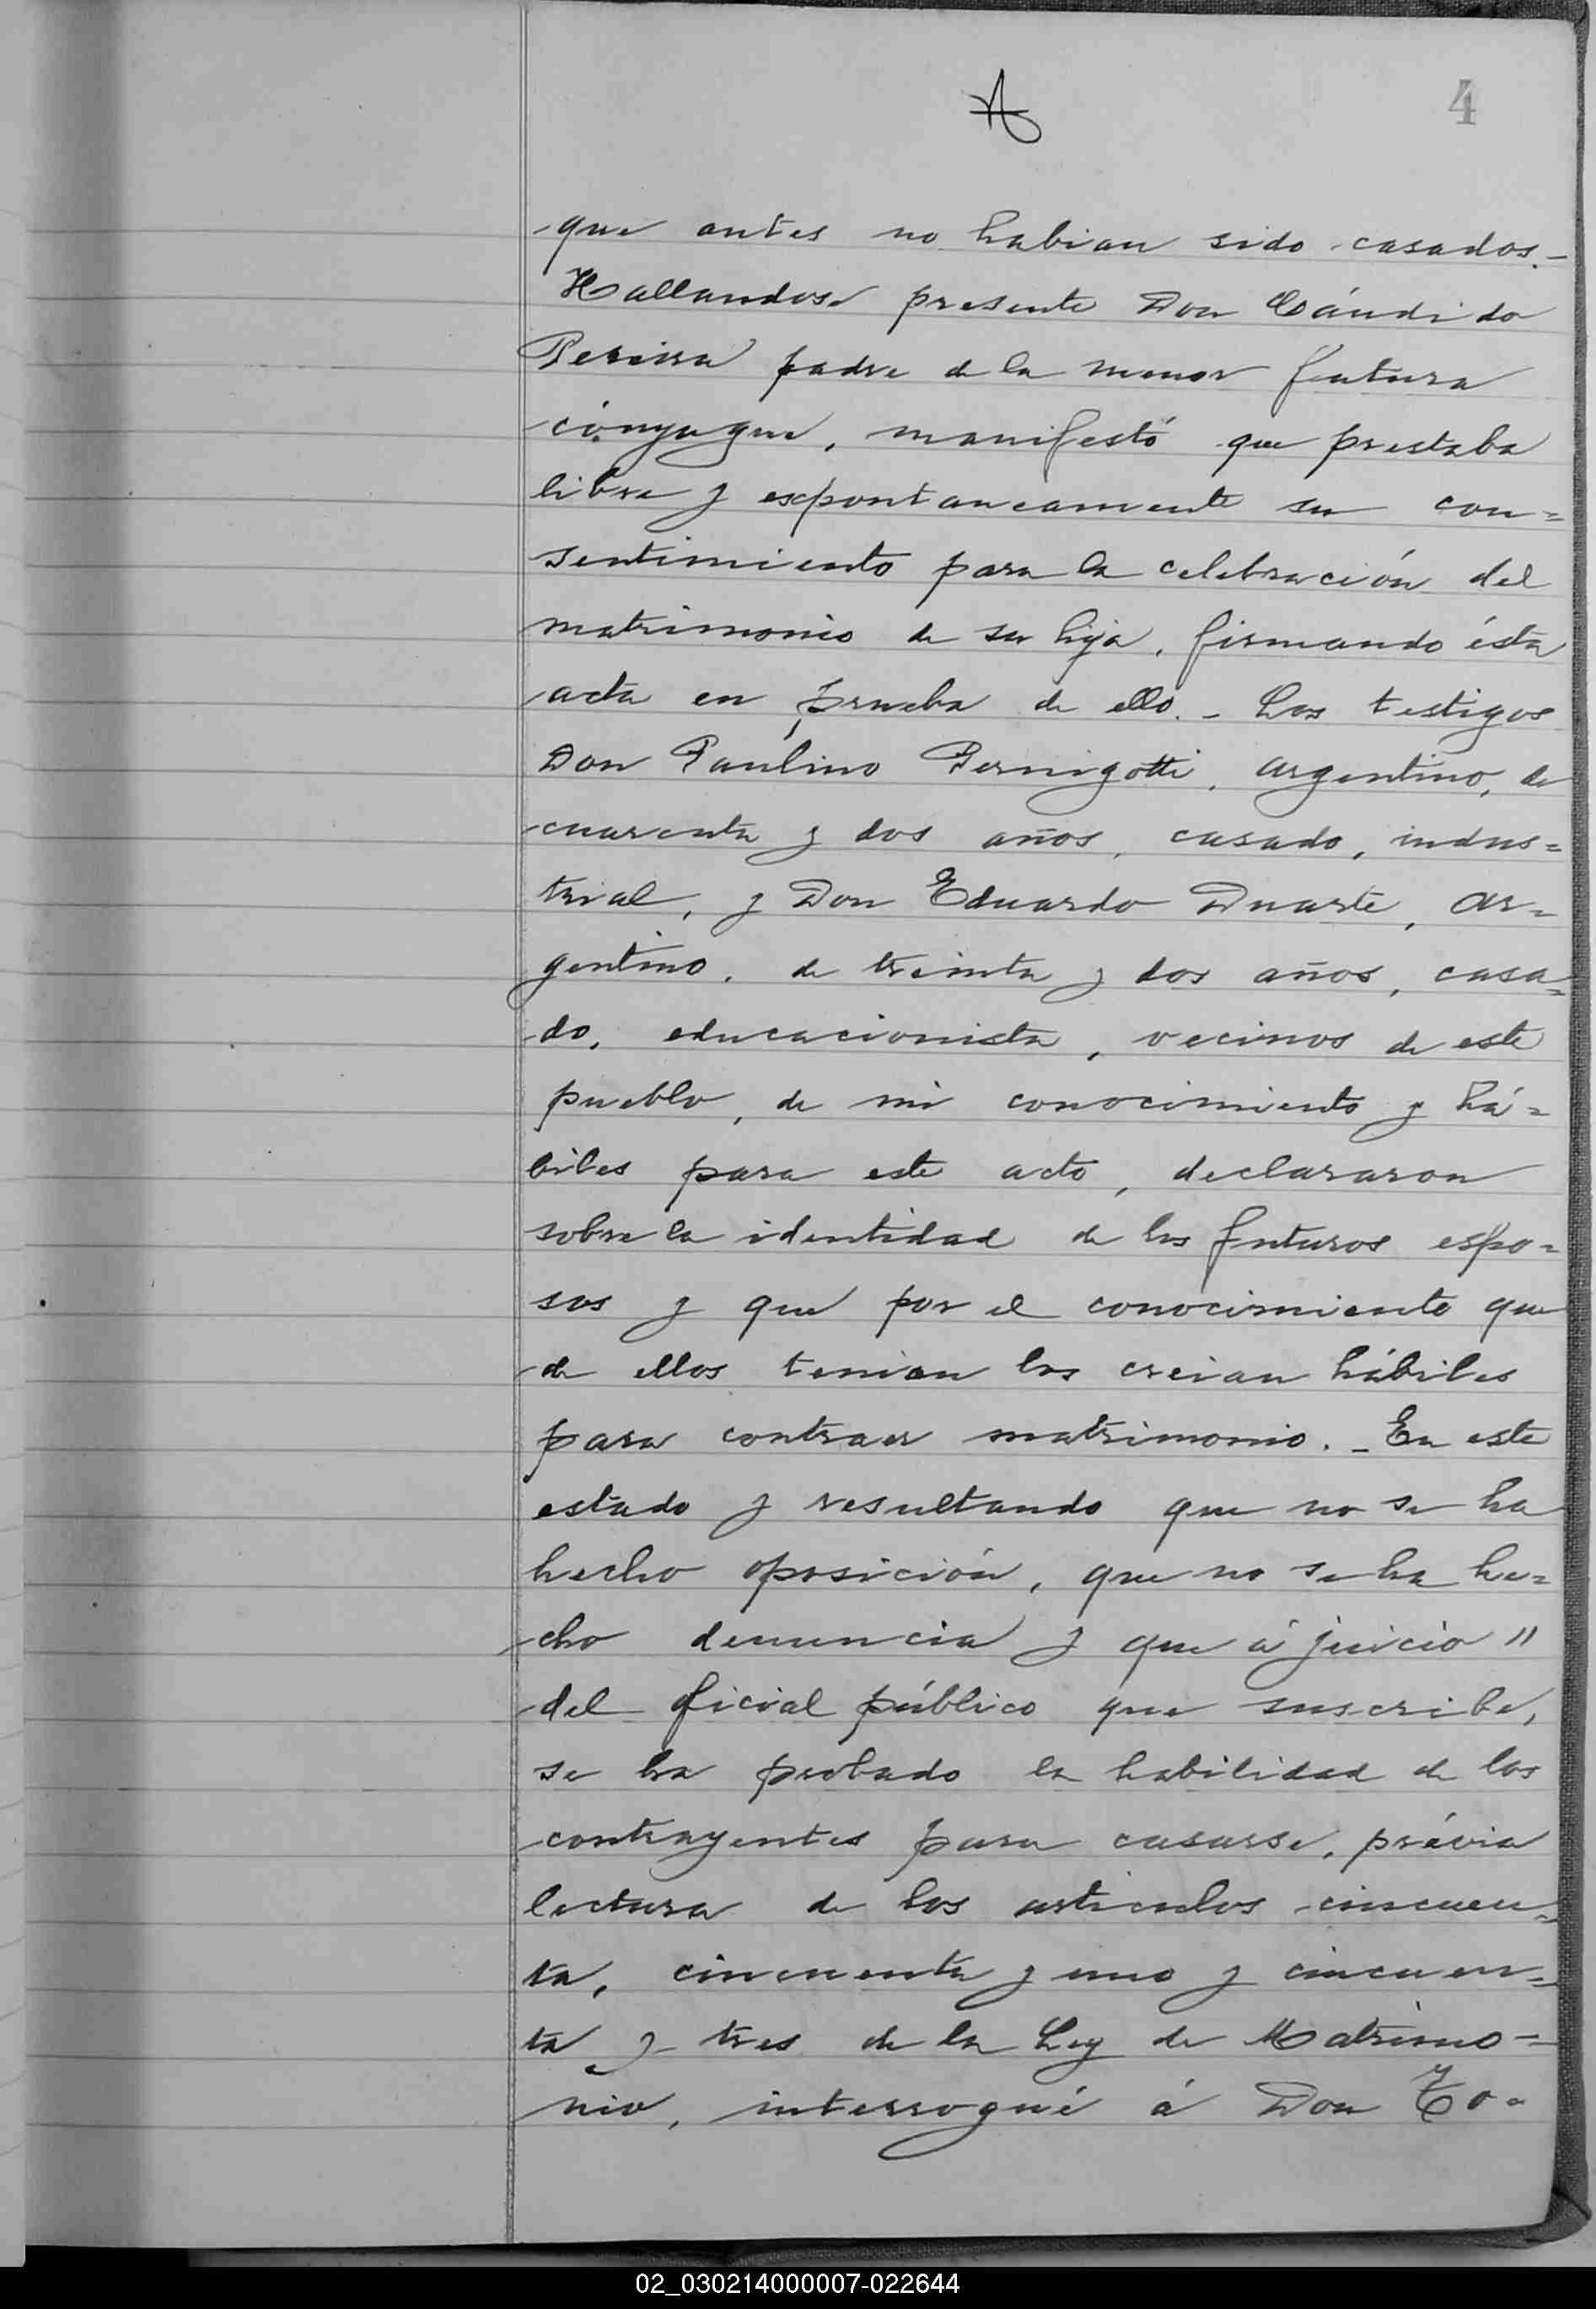 4
que antes no habian sido casados.-
Hallandose presente Don Cándido
Pereira padre de la menor futura
cónyugue, manifestó que prestaba
libre y espontaneamente su con=
sentimiento para la celebración del
matrimonio de su hija, firmando ésta
acta en prueba de ello.- Los testigos
Don Paulino Pernigotti, argentino, de
cuarenta y dos años, casado, indus=
trial, y Don Eduardo Duarte, ar=
gentino, de treinta y dos años, casa=
do, educacionista, vecinos de este
pueblo, de mi conocimiento y há=
biles para este acto, declararon
sobre la identidad de los futuros espo=
sos y que por el conocimiento que
de ellos tenian los creian hábiles
para contraer matrimonio.- En este
estado y resultando que no se ha
hecho oposición, que no se ha he=
cho denuncia y que á juicio "
del oficial público que suscribe,
se ha probado la habilidad de los
contrayentes para casarse, prévia
lectura de los articulos cincuen=
ta, cincuenta y uno y cincuen=
ta y tres de la Ley de Matrimo=
nio, interrogué á Don To=
02_030214000007-022644